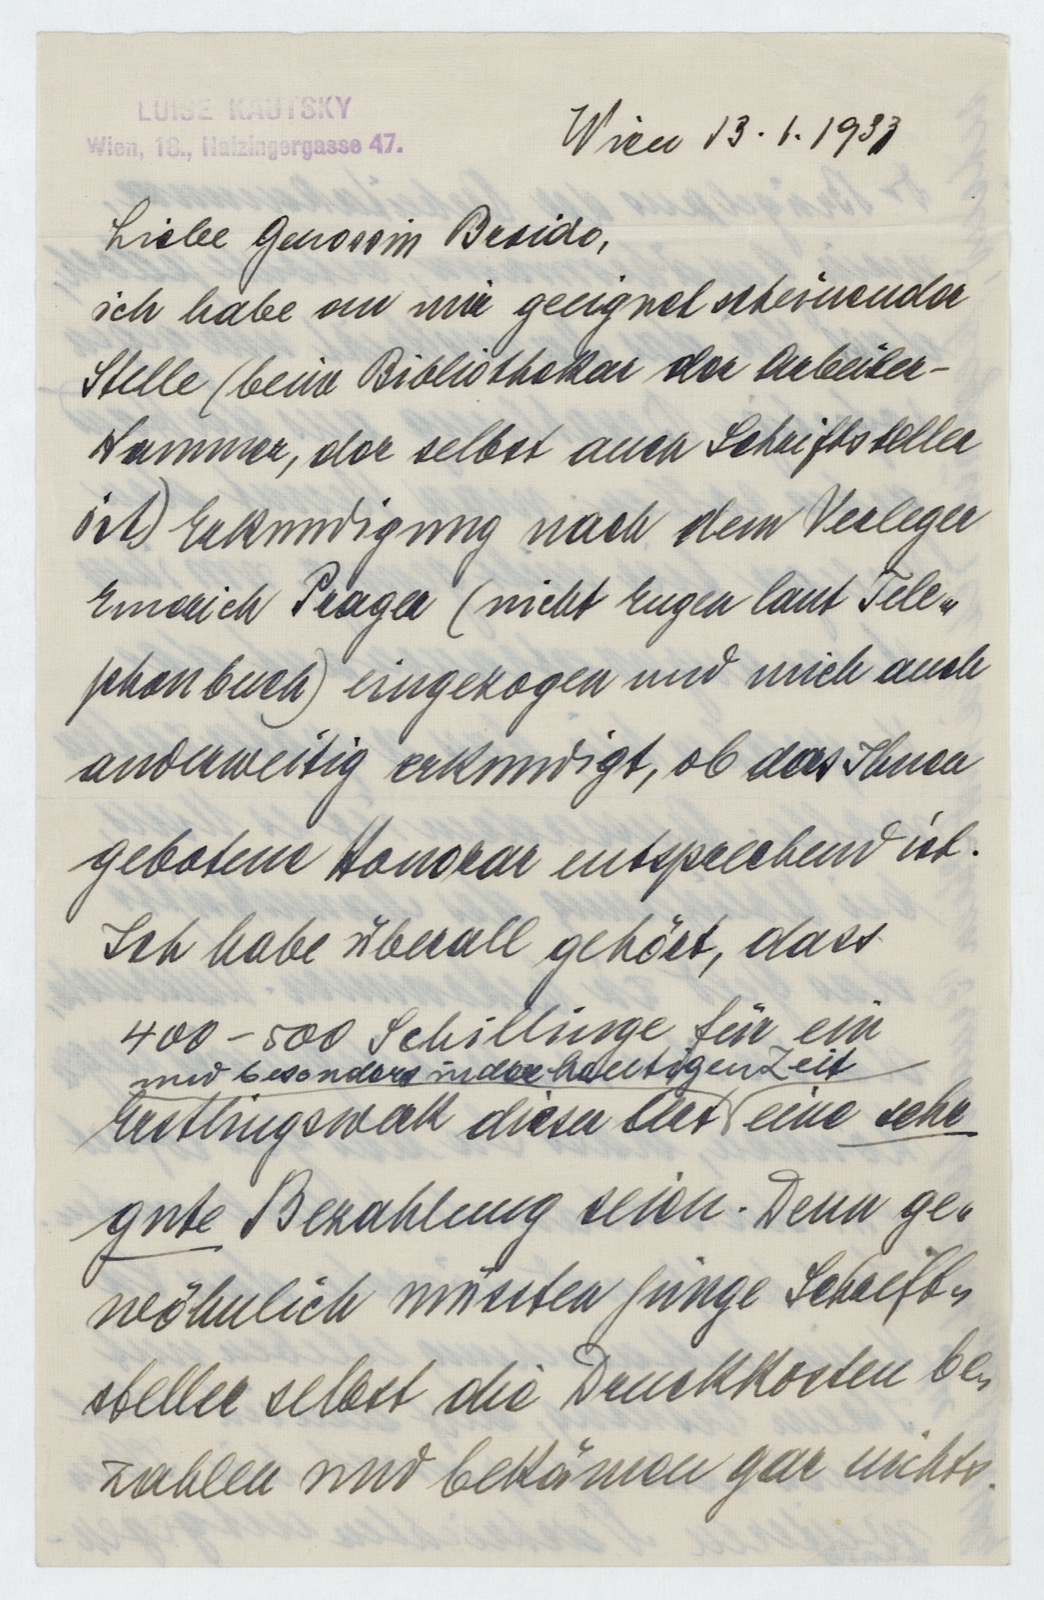 LUISE KAUTSKY
Wien, 18., Haizingergasse 47.
Wien 13. 1. 1937
Liebe Genossin Breido,
ich habe an mir geeignet scheinender
Stelle (beim Bibliothekar der Arbeiter-
Kammer, der selbst auch Schriftsteller
ist) Erkundigung nach dem Verleger
Emerich Prager (nicht Eugen laut Tele„
phonbuch) eingezogen und mich auch
anderweitig erkundigt, ob das Ihnen
gebotene Honorar entsprechend ist.
Ich habe überall gehört, dass
400 – 500 Schillinge für ein
und besonders in der heutigen Zeit
Erstlingswerk dieser Art eine sehr
gute Bezahlung seien. Denn ge„
wöhnlich müssten junge Schrift„
steller selbst die Druckkosten be„
zahlen und bekämen gar nichts.